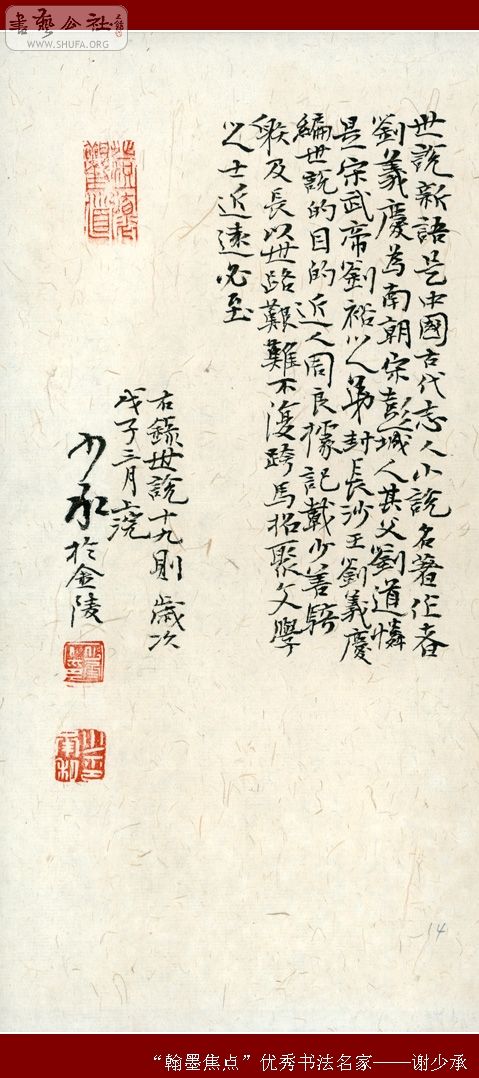 書藝公社
WWW.SHUFA.ORG
世說新語是中國古代志人小說名著作者
劉義慶為南朝宋彭城人其父劉道憐
是宋武帝劉裕以人弟封長沙王劉義慶
編世說的目的近人周良據記載少善騎
及長以世路艱難不復跨馬招聚文學
之士近遠必至
右錄世說十九則歲次
戊子三月上浣
少承於金陵
14
“翰墨焦点”优秀书法名家——谢少承